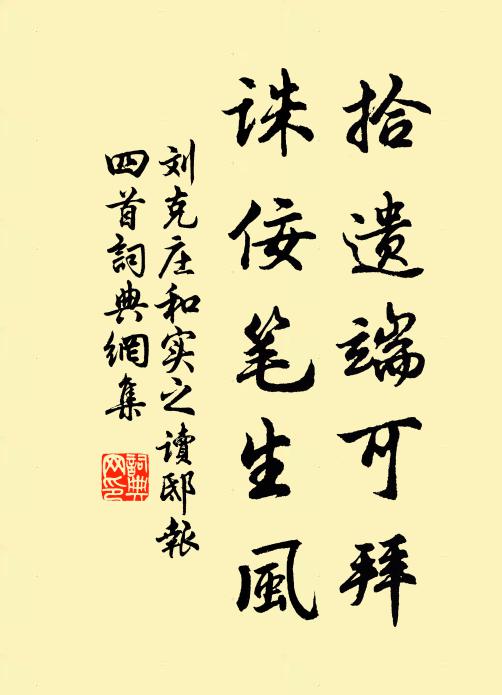 拾遗端可拜
诛佞笔生風
刘克庄和实之讀邸報
四首詞典網集
詞典
网印